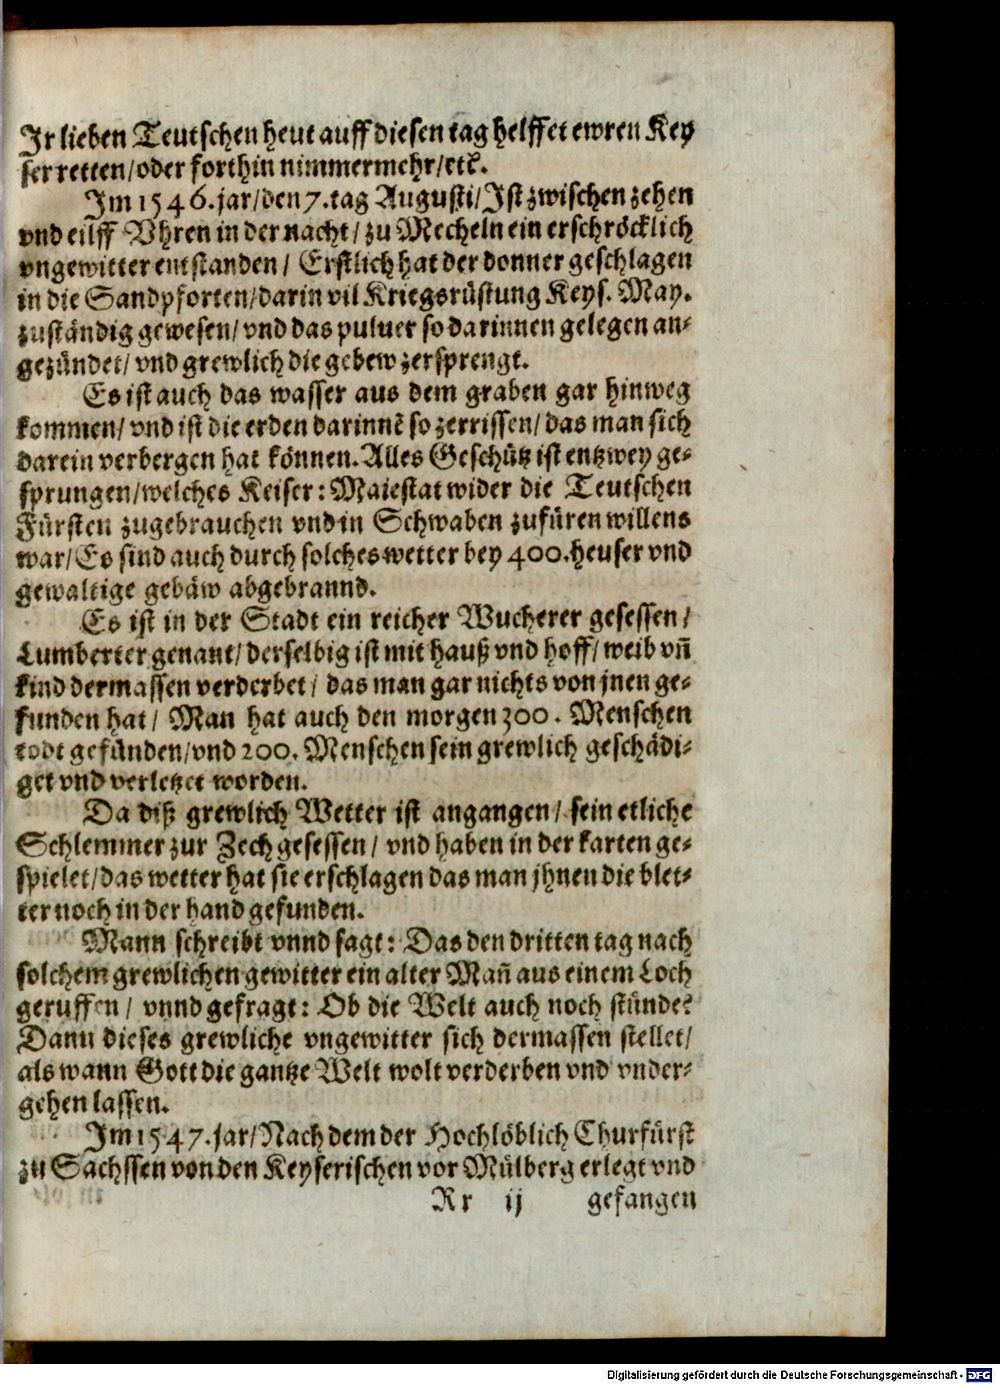 Ir lieben Teutschen heut auff diesen tag helffet ewren Key
ser retten/oder forthin nimmermehr/etc.
Im 1546.jar/den 7.tag Augusti/Ist zwischen zehen
vnd eilff Vhren in der nacht/ zu Mecheln ein erschröcklich
vngewitter entstanden/ Erstlich hat der donner geschlagen
in die Sandpforten/darin vil Kriegsrüstung Keys. May.
zuständig gewesen/vnd das puluer so darinnen gelegen an⸗
gezündet/ vnd grewlich die gebew zersprengt.
Es ist auch das wasser aus dem graben gar hinweg
kommen/ vnd ist die erden darinnẽ so zerrissen/ das man sich
darein verbergen hat können. Alles Geschütz ist entzwey ge⸗
sprungen/welches Keiser: Maiestat wider die Teutschen
Fürsten zugebrauchen vnd in Schwaben zufüren willens
war/Es sind auch durch solches wetter bey 400.heuser vnd
gewaltige gebäw abgebrannd.
Es ist in der Stadt ein reicher Wucherer gesessen/
Lumberter genant/ derselbig ist mit hauß vnd hoff/ weib vñ
kind dermassen verderbet/ das man gar nichts von jnen ge⸗
funden hat/ Man hat auch den morgen 300. Menschen
todt gefünden/vnd 200. Menschen sein grewlich geschädi⸗
get vnd verletzet worden.
Da diß grewlich Wetter ist angangen/ sein etliche
Schlemmer zur Zech gesessen/ vnd haben in der karten ge⸗
spielet/das wetter hat sie erschlagen das man jhnen die blet⸗
ter noch in der hand gefunden.
Mann schreibt vnnd sagt: Das den dritten tag nach
solchem grewlichen gewitter ein alter Mañ aus einem Loch
geruffen/ vnnd gefragt: Ob die Welt auch noch stünde?
Dann dieses grewliche vngewitter sich dermassen stellet/
als wann Gott die gantze Welt wolt verderben vnd vnder⸗
gehen lassen.
Im 1547.jar/Nach dem der Hochlöblich Churfürst
zu Sachssen von den Keyserischen vor Mülberg erlegt vnd
Rr ij gefangen
Digitalisierung gefördert durch die Deutsche Forschungsgemeinschaft - DFG